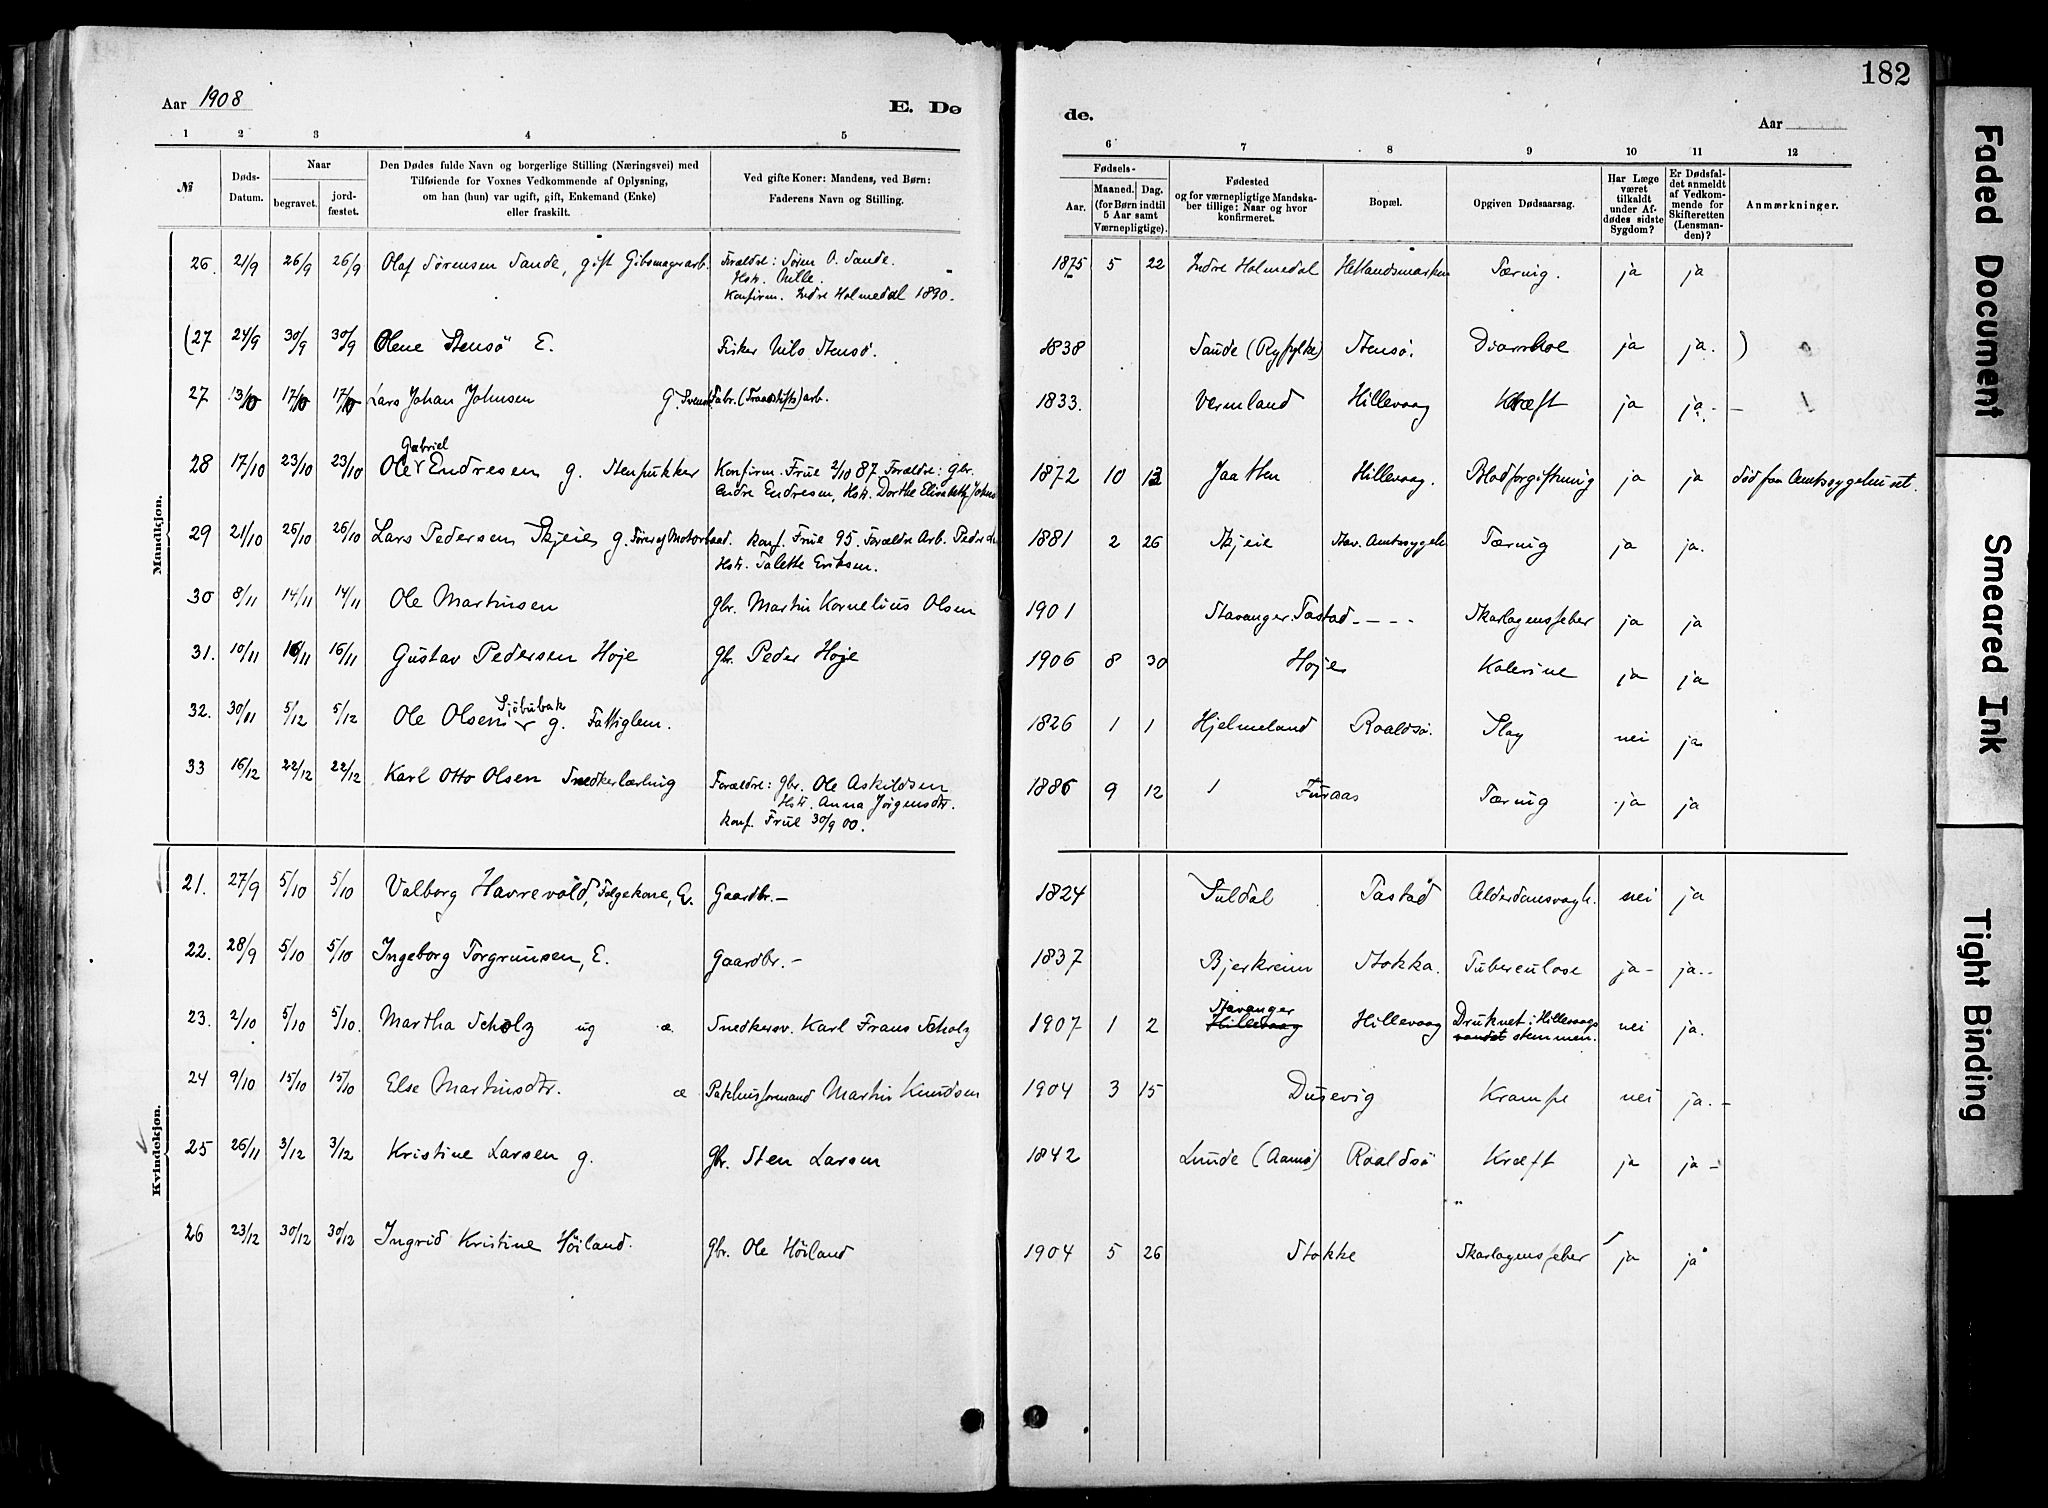 182
Aar 1908
E. Dø
de.
Aar
1 2 3 4 5 6 7 8 9 10 11 12
№
Døds-Datum.
Naar
begravet.
jord-fæstet.
Den Dødes fulde Navn og borgerlige Stilling (Næringsvei) med
Tilføiende for Voxnes Vedkommende af Oplysning,
om han (hun) var ugift, gift, Enkemand (Enke)
eller fraskilt.
Ved gifte Koner: Mandens, ved Børn:
Faderens Navn og Stilling.
Fødsels-
Aar.
Maaned. Dag.
(for Børn indtil
5 Aar samt
Værnepligtige).
Fødested
og for værnepligtige Mandska-
ber tillige: Naar og hvor
konfirmeret.
Bopæl.
Opgiven Dødsaarsag.
Har Læge
været
tilkaldt
under Af-
dødes sidste
Sygdom?
Er Dødsfal-
det anmeldt
af Vedkom-
mende for
Skifteretten
(Lensman-
den)?
Anmærkninger.
Mandkjøn.
26. 21/9 26/9 26/9 Olaf Sørensen Sande, gift Gibsmagerarb. Forældre: Søren O. Sande. 1875 5 22 Indre Holmedal Hetlandsmarken Tæring. ja ja
Hstr. Nille.
Konfirm. Indre Holmedal 1890.
(27 24/9 30/9 30/9 Olene Stensö E. Fisker Nils Stensö. 1838 Saude (Ryfylke) Stensö. Diarrhoe ja ja. )
27 13/10 17/10 17/10 Lars Johan Johnsen G. Svensk Fabr. (Traadstifts) arb. 1833. Vermland Hillevaag Kræft ja ja. –
28 17/10 23/10 23/10 Ole Gabriel Endresen g. Stenpukker Konfirm. Frue 2/10 87 Forældre: Gbr. 1872 10 13 Jaatten Hillevaag. Blodforgiftning ja ja død paa Amtssygehuset.
Andre Endresen, Hstr. Dorthe Elisabeth Johns
29 21/10 26/10 26/10 Lars Pedersen Skjeie g. Fører af Motorbaad. Konf. Frue 95. Forældre Arb. Peder 1881 2 26 Skjeie Stav. Amtssygeh. Tæring ja ja.
Hstr. Talette Eriksen.
30 8/11 14/11 14/11 Ole Martinsen Gbr. Martin Kornelius Olsen 1901 Stavanger. Tastad - - - - Skarlagensfeber ja ja
31. 10/11 16/11 16/11 Gustav Pedersen Hoje Gbr. Peder Hoje 1906 8 30 Hoje Kolerine ja ja
32. 30/11 5/12 5/12 Ole Olsen Sjöbubak g. Fattiglem. 1826 1 1 Hjelmeland Roaldsö. Slag nei ja
33 16/12 22/12 22/12 Karl Otto Olsen Snedkerlærling Forældre: Gbr. Ole Askildsen 1886 9 12 Furaas Tæring ja ja
Hstr. Anna Jörgensdtr.
Konf. Frue 30/9 00.
Kvindekjøn.
21. 27/9 5/10 5/10 Valborg Havrevold, Følgekone, E. Gaardbr. – 1824 Suldal Tastad Alderdomssvagh. nei ja
22. 28/9 5/10 5/10 Ingeborg Torgrimsen, E. Gaardbr. – 1837 Bjerkreim Stokka. Tuberculose ja - ja. -
23. 2/10 5/10 5/10. Martha Scholz ug æ Snedkersv. Karl Frans Scholz 1907 1 2 Stavanger Hillevaag Hillevaag Druknet i Hillevaags vandet stemmen. nei ja.
24 9/10 15/10 15/10 Else Martinsdtr. æ Pakhusformand Martin Knudsen 1904 3 15 Dusevig Krampe nei ja. -
25 26/11 3/12 3/12 Kristine Larsen g. Gbr. Sten Larsen 1842 Lunde (Aamø) Roaldsö Kræft ja ja -
26 23/12 30/12 30/12 Ingrid Kristine Höiland. Gbr. Ole Höiland 1904 5 26 Stokke Skarlagensfeber ja ja
Faded Document
Smeared Ink
Tight Binding